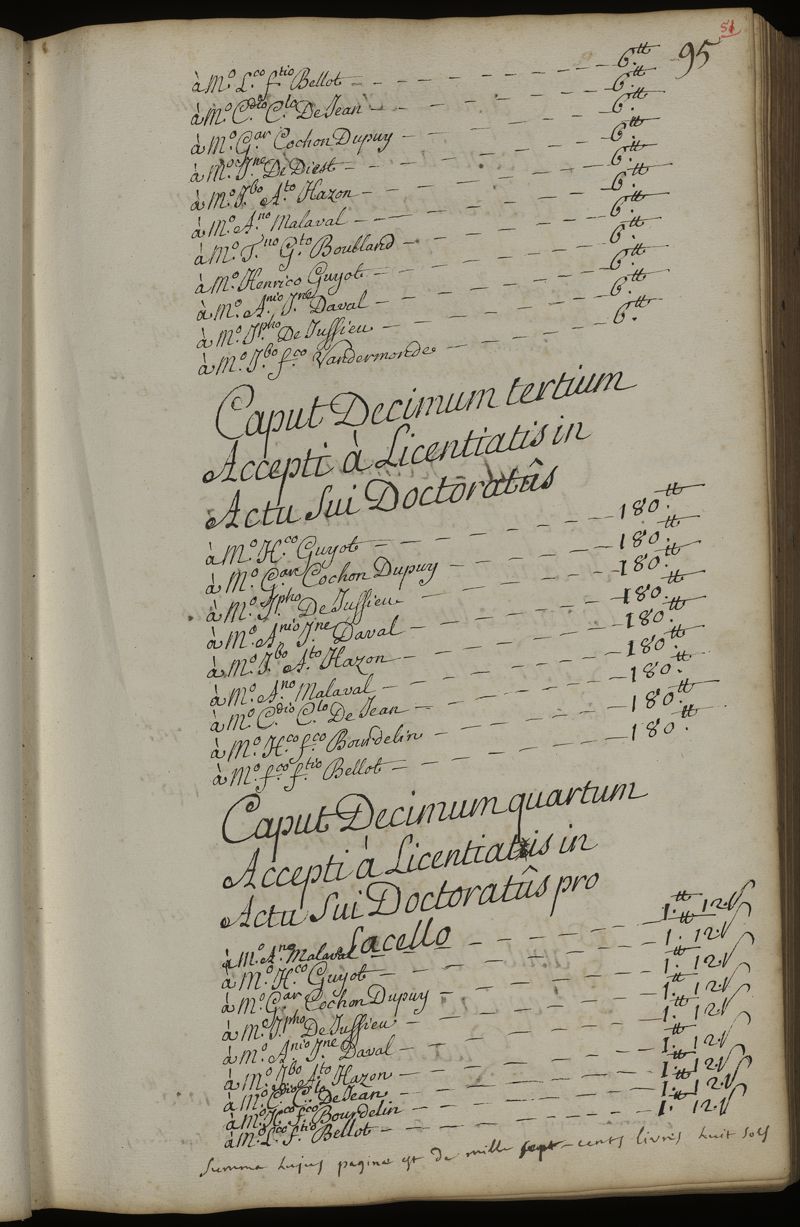 51
95
à M.º L.co f.tio Bellot — 6.tt
à M.º C.dio C.lo De Jean — 6.tt
à M.º G.ar Cochon Dupuy — 6.tt
à M.º J.ne De Diest — 6.tt
à M.º J.bo A.to Hazon — 6.tt
à M.º A.no Malaval — 6.tt
à M.º T.no G.to Boubland — 6.tt
à M.º Henrico Guyot — 6.tt
à M.º A.nio J.ne Daval — 6.tt
à M.º J.pho De Jussieu — 6.tt
à M.º J.bo f.co Vandermonde — 6.tt
Caput Decimum tertium
Accepti à Licentiatis in
Actu Sui Doctoratûs
à M.º H.co Guyot — 180.tt
à M.º G.ar Cochon Dupuy — 180.tt
à M.º J.pho De Jussieu — 180.tt
à M.º A.nio J.ne Daval — 180.tt
à M.º J.bo A.to Hazon — 180.tt
à M.º A.no Malaval — 180.tt
à M.º C.dio C.lo De Jean — 180.tt
à M.º H.co f.co Bourdelin — 180.tt
à M.º f.co f.tio Bellot — 180.tt
Caput Decimum quartum
Accepti à Licentiatis in
Actu Sui Doctoratûs pro
Sacello
à M.º A.no Malaval — 1.tt 12.s
à M.º H.co Guyot — 1.tt 12.s
à M.º G.ar Cochon Dupuy — 1.tt 12.s
à M.º J.pho De Jussieu — 1.tt 12.s
à M.º A.nio J.ne Daval — 1.tt 12.s
à M.º J.bo A.to Hazon — 1.tt 12.s
à M.º C.dio C.lo De Jean — 1.tt 12.s
à M.º H.co f.co Bourdelin — 1.tt 12.s
à M.º L.co f.tio Bellot — 1.tt 12.s
Summa hujus paginæ est de mille sept-cents livres huit sols